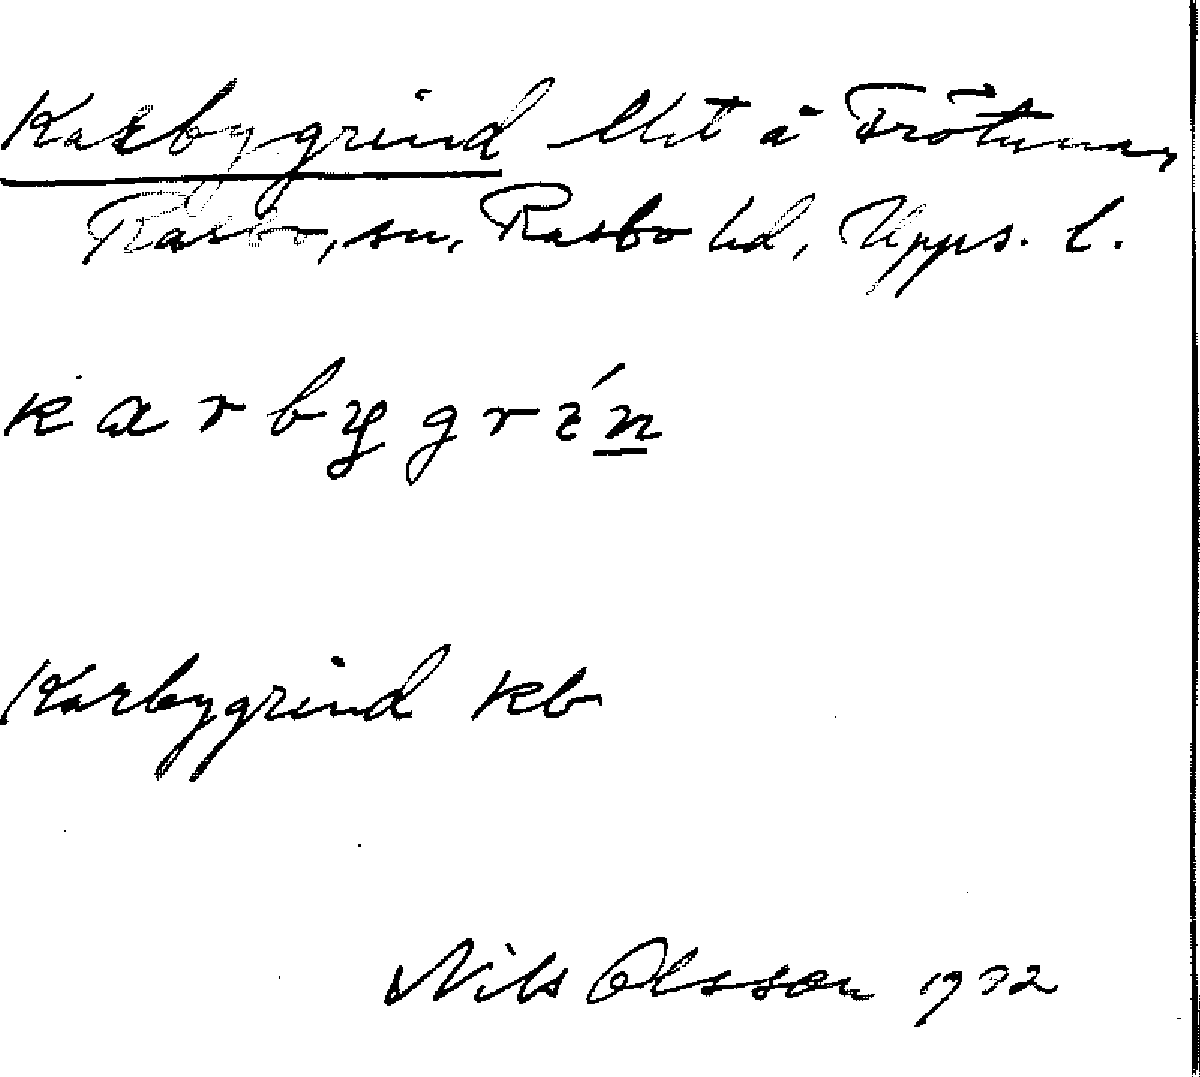 Karbygrind lht å Frötuna,
Rasbo, sn, Rasbo hd, Upps. l.
karbygrin
Karbygrind kb
Nils Olsson 1932